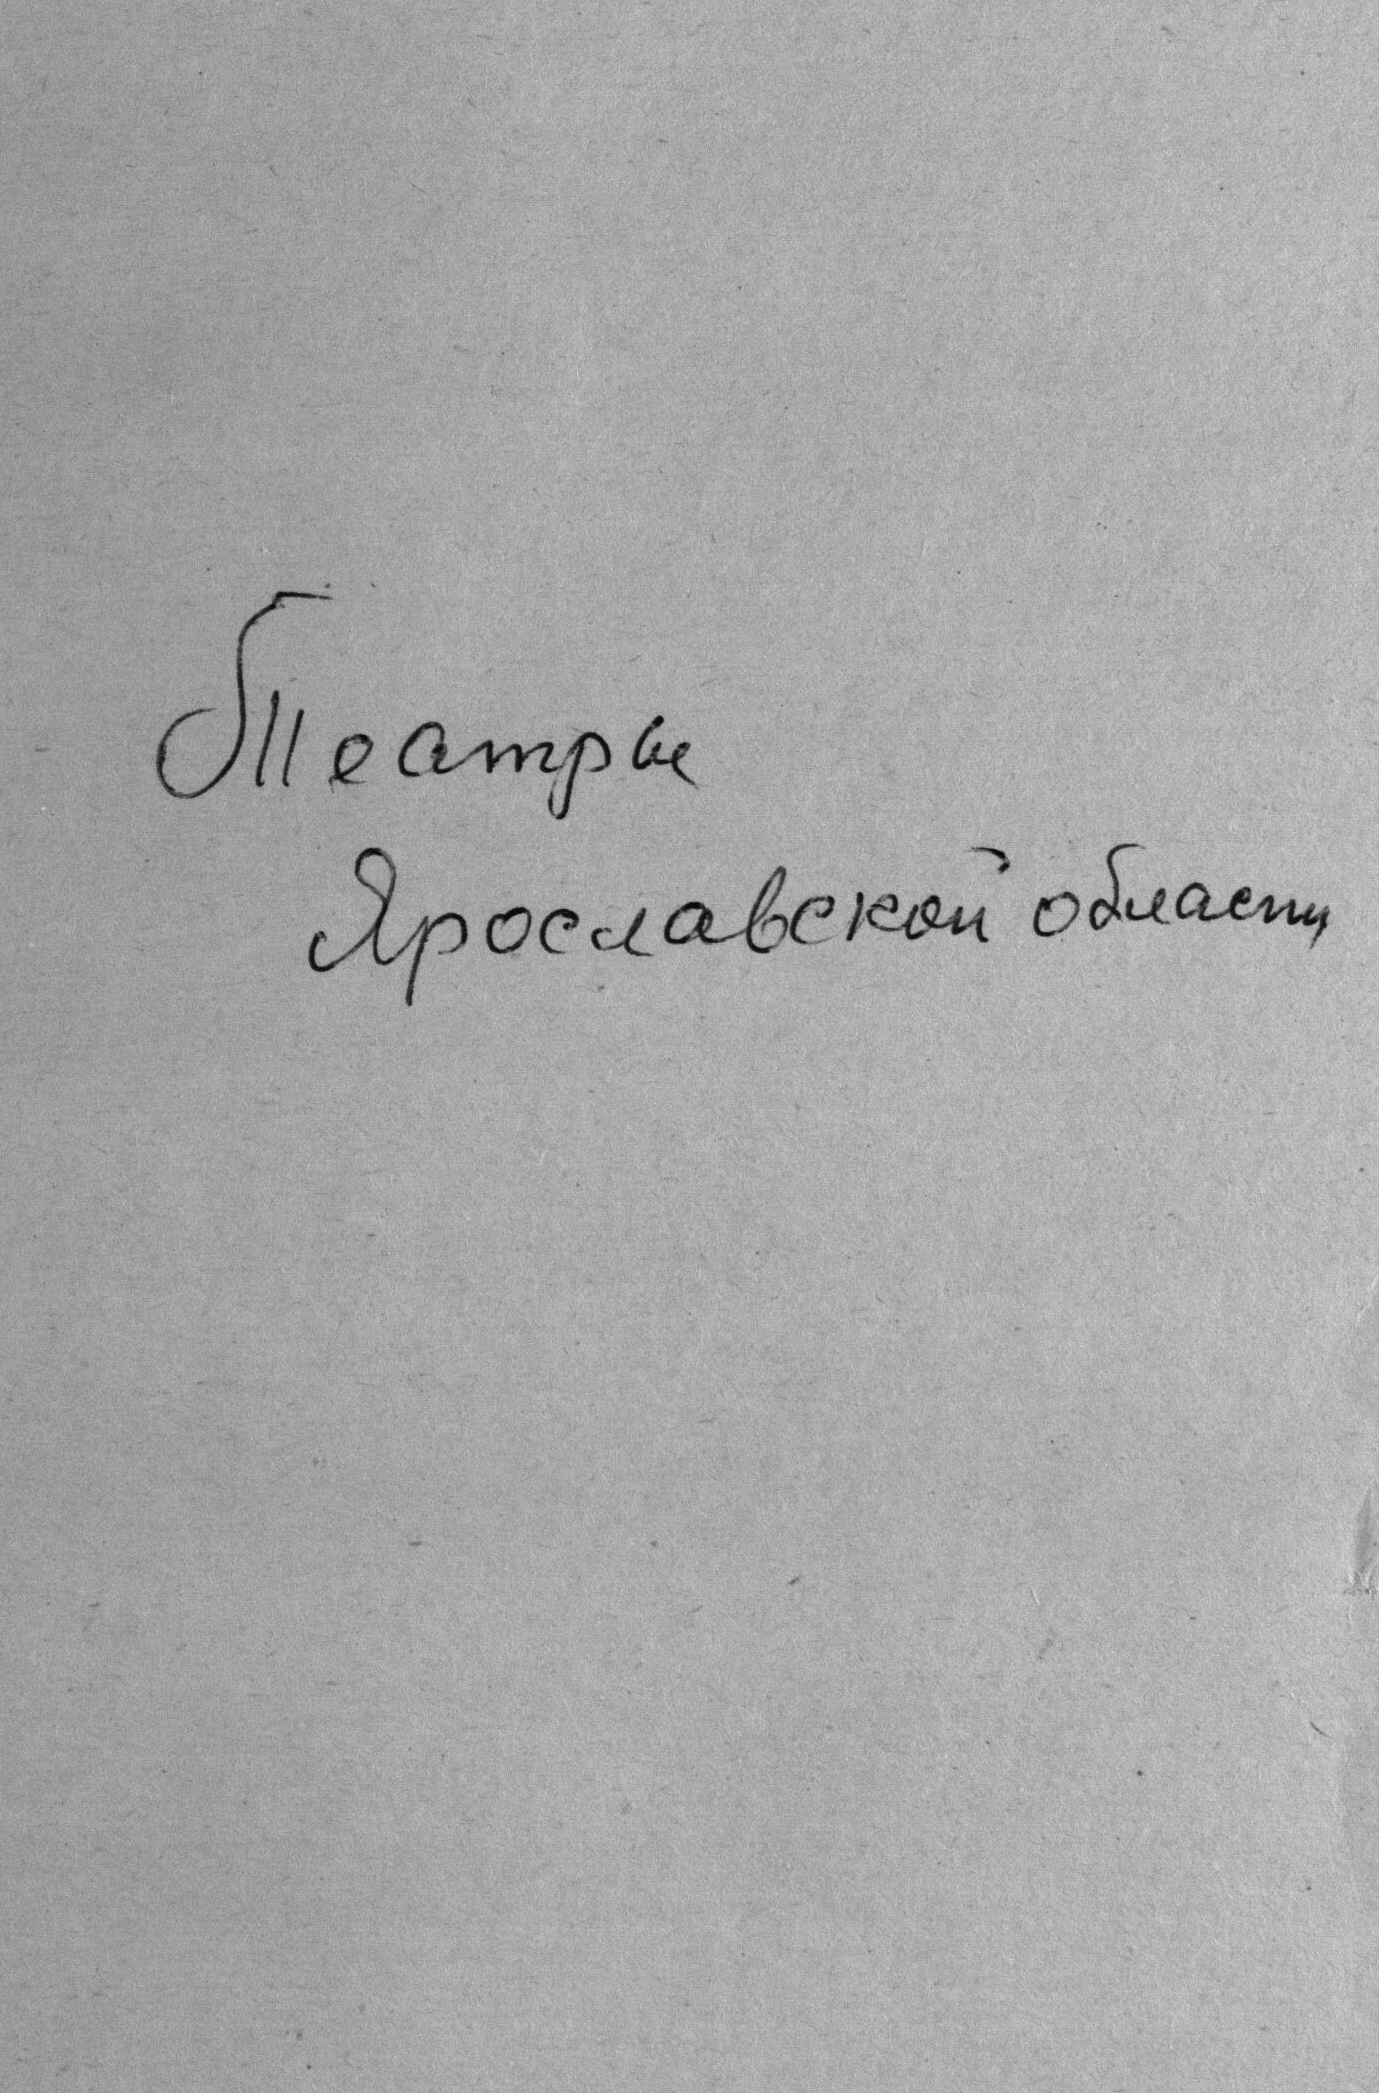 Театры
Ярославской области